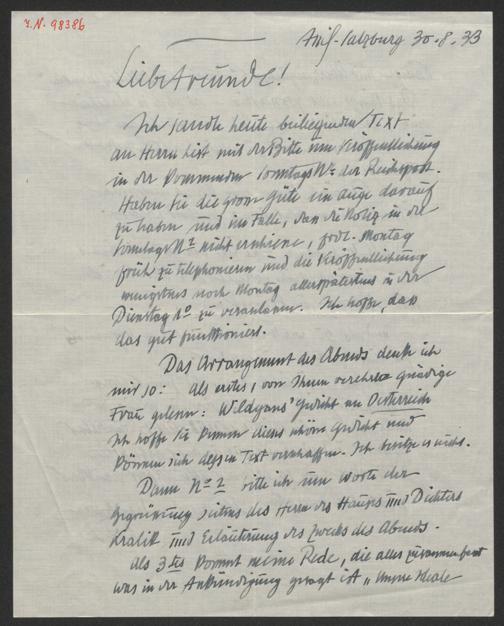 I.N. 98386
Anif-Salzburg 30.8.33
Liebe Freunde!
Ich sandte heute beiliegenden Text
an Herrn mit der Bitte um Veröffentlichung
in der kommenden Sonntags Nr. der Reichspost.
Haben Sie die große Güte ein Auge darauf
zu haben und im Falle, dass die Notiz in der
Sonntags Nr nicht erschiene, frdl. Montag
früh zu telephonieren und die Veröffentlichung
wenigstens noch Montag allerspätestens in der
Dienstag No zu veranlassen. Ich hoffe, dass
das gut funktioniert.
Das Arrangement des Abends denke ich
mir so: als erstes, von Ihnen verehrte gnädige
Frau gelesen: Wildgans' Gedicht an Österreich
Ich hoffe Sie kennen dieses schöne Gedicht und
können sich dessen Text verschaffen. Ich besitze es nicht.
Dann No 2 bitte ich um Worte der
Begrüssung seitens des Herrn des Hauses und Dichters
Kralik und Erläuterung des Zwecks des Abends.
Als 3tes kommt meine Rede, die alles zusammenfasst
was in der Ankündigung gesagt ist „Unsere Ideale